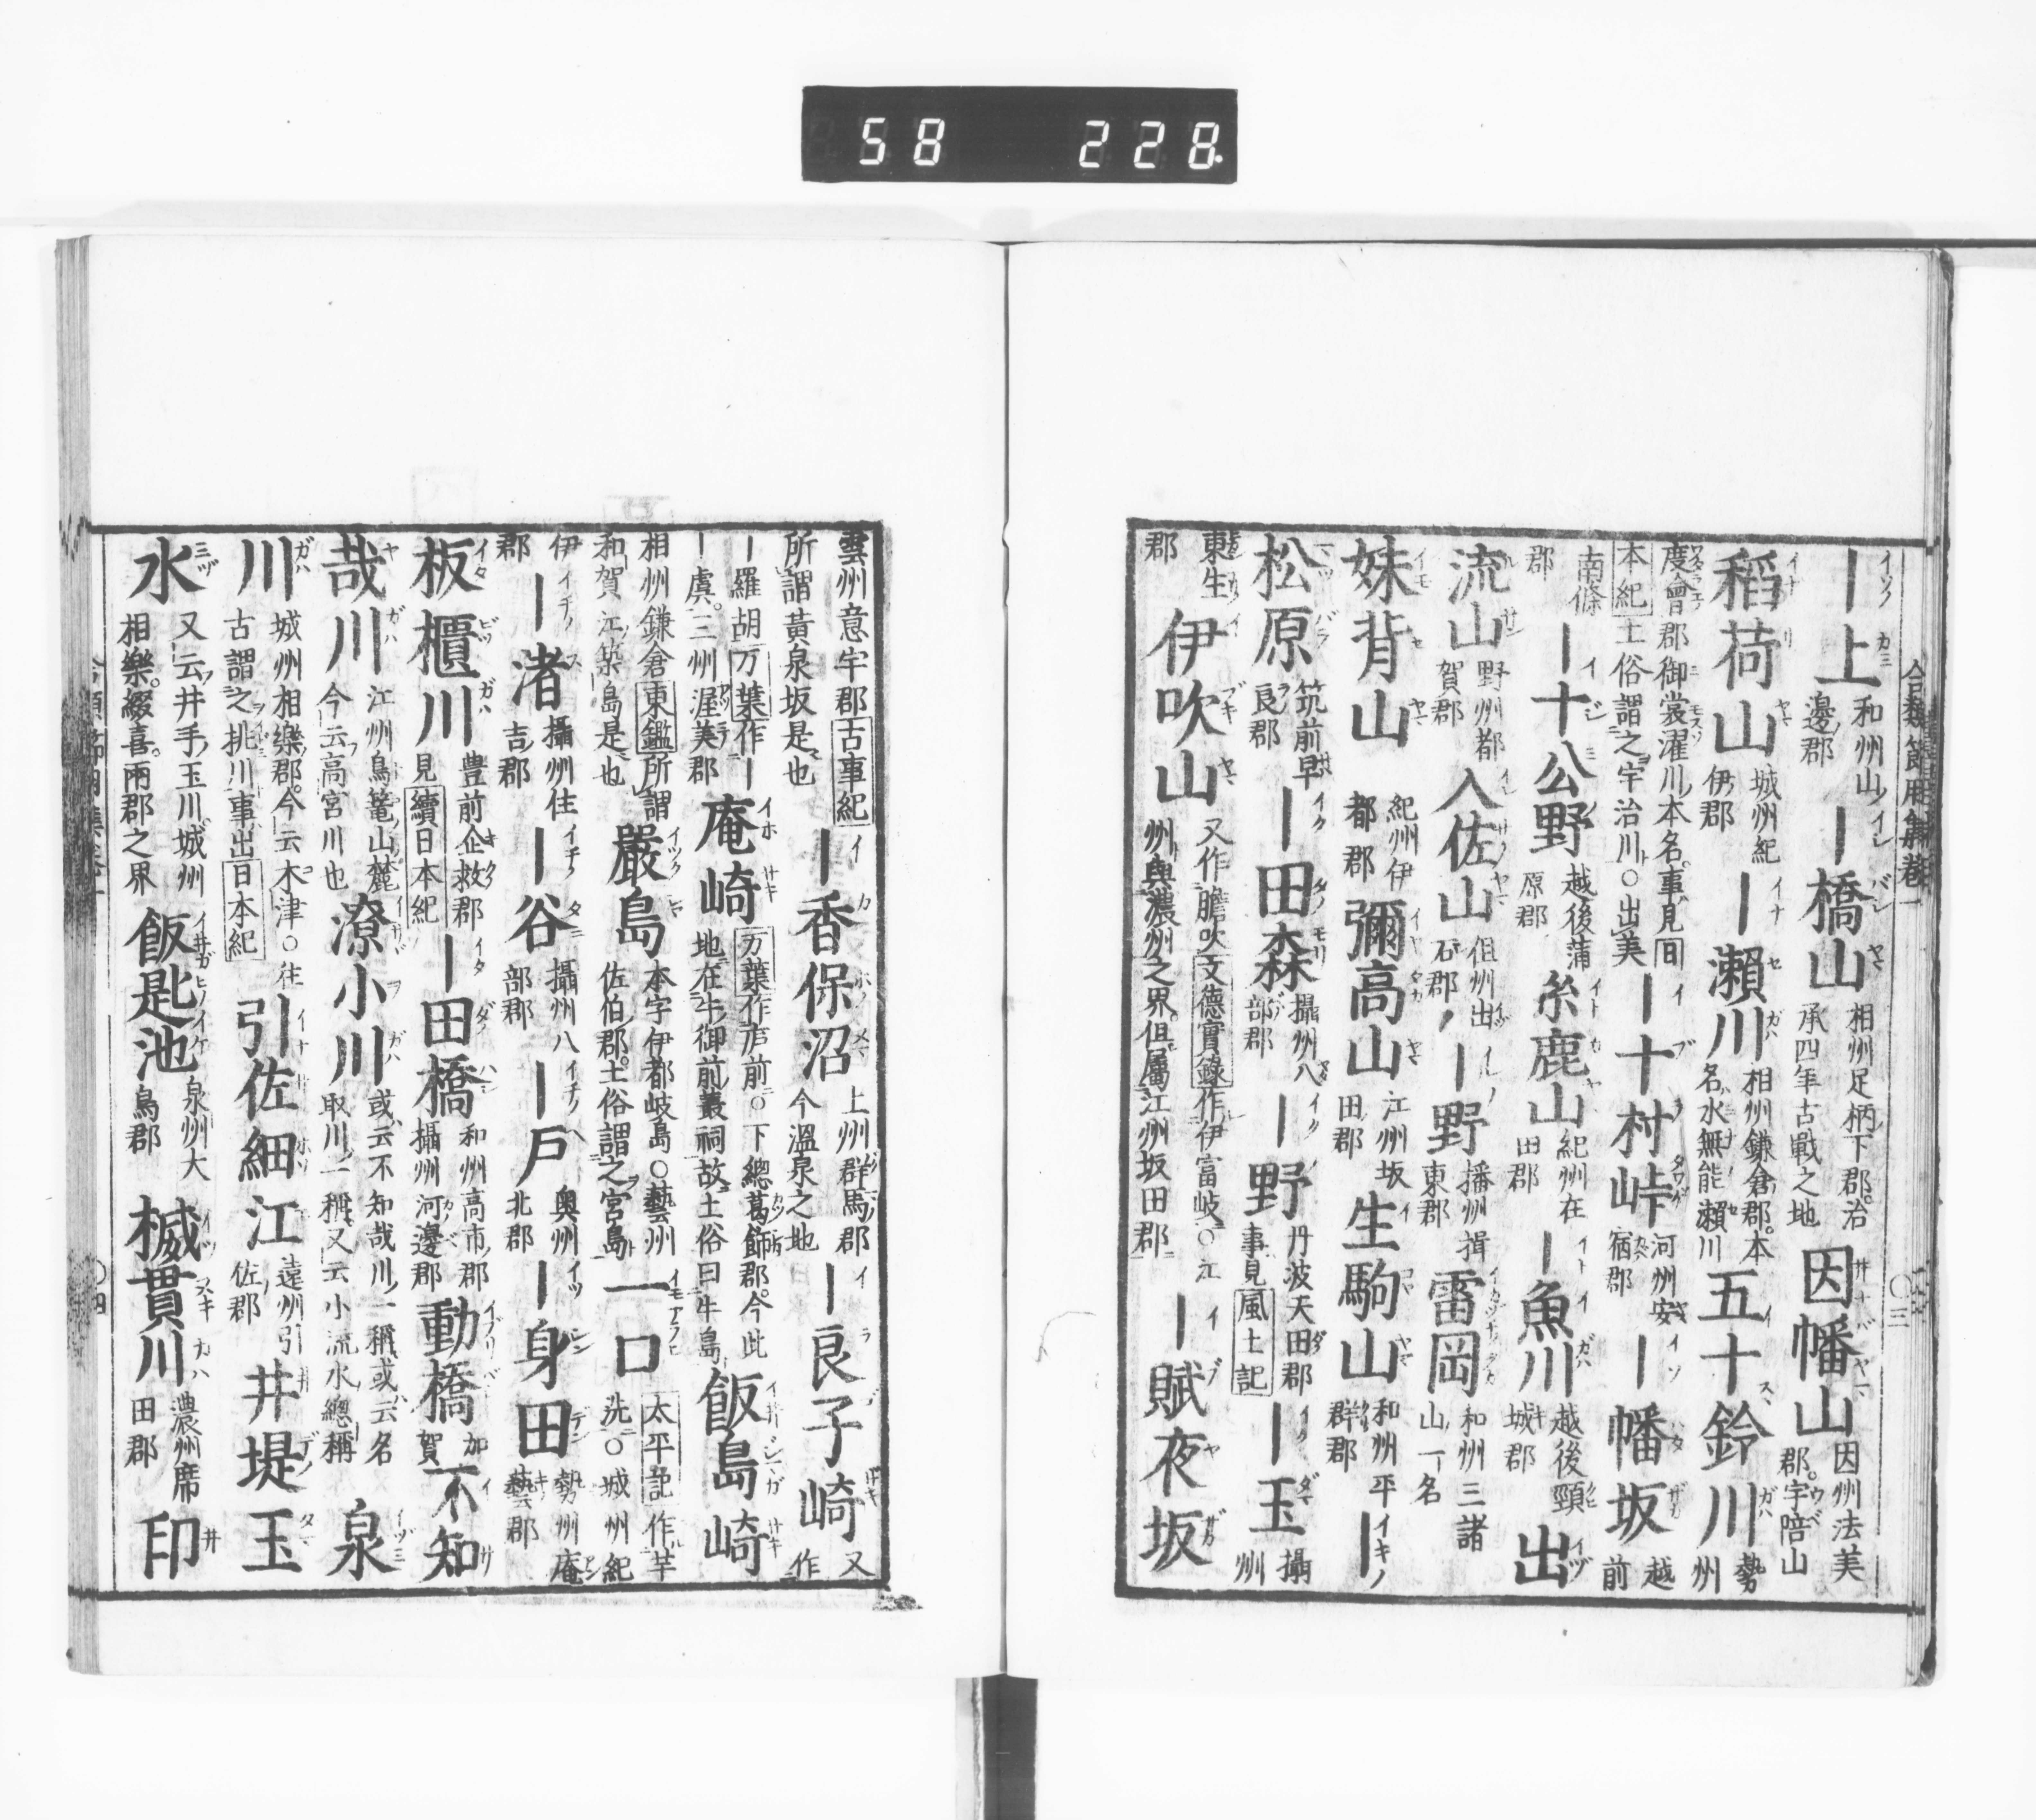 58 228
合類節用集卷一
〇三
｜上 和州山邊郡 ｜橋山 相州足柄下郡。治承四年古戰之地 因幡山 因州法美郡。宇陪山
稻荷山 城州紀伊郡 ｜瀬川 相州鎌倉郡。本名水無能瀬川 五十鈴川 勢州
度會郡御裳濯川本名。事見日本紀土俗謂之宇治川〇出美 ｜十村峠 河州安宿郡 ｜幡坂 越前
南條郡 ｜十公野 越後蒲原郡 糸鹿山 紀州在田郡 ｜魚川 越後頸城郡 出
流山 野州都賀郡 入佐山 但州出石郡 ｜野 播州揖東郡 雷岡 和州三諸山一名
妹背山 紀州伊都郡 彌高山 江州坂田郡 生駒山 和州平群郡 ｜
松原 筑前早良郡 ｜田森 攝州八部郡 ｜野 丹波天田郡事見風土記 ｜玉 攝州
東生郡 伊吹山 又作膽吹文德實錄作伊富岐〇江州與濃州之界。但屬江州坂田郡 ｜賦夜坂
雲州意宇郡古事紀所謂黃泉坂是也 ｜香保沼 上州群馬郡今溫泉之地 ｜良子崎 又作
｜羅胡万葉作｜｜虞。三州渥美郡 庵崎 万葉作庐前〇下總葛飾郡。今此地在牛御前叢祠故土俗曰牛島 飯島崎
相州鎌倉東鑑所謂和賀江築島是也 嚴島 本字伊都岐島〇藝州佐伯郡。土俗謂之宮島 一口 太平記作芋洗〇城州紀
伊郡 ｜渚 攝州住吉郡 ｜谷 攝州八部郡 ｜戸 奥州北郡 ｜身田 勢州庵藝郡
板櫃川 豊前企救郡見續日本紀 ｜田橋 和州高市郡攝州河邊郡 動橋 加賀 不知
哉川 江州鳥篭山麓今云高宮川也 潦小川 或云不知哉川一稱或云名取川一稱。又云小流水總稱 泉
川 城州相樂郡。今云木津〇往古謂之挑川事出日本紀 引佐細江 遠州引佐郡 井堤玉
水 又云井手玉川城州相樂。綴喜。兩郡之界 飯匙池 泉州大鳥郡 樴貫川 濃州席田郡 印
〇四